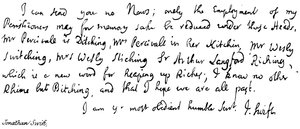 I can send you no News; only the Employment of my
Parishioners may for memory sake be reduced under these Heads,
Mr Percivale is Ditching, Mrs Percivale in her Kitchin, Mr Wesly
Switching, Mrs Wesly Stiching Sr Arthur Langford Riching,
which is a new word for heaping up Riches; I know no other
Rhime but Bitching, and that I hope we are all past.
I am yr most obedient humble Servt. J. Swift
Jonathan Swift.